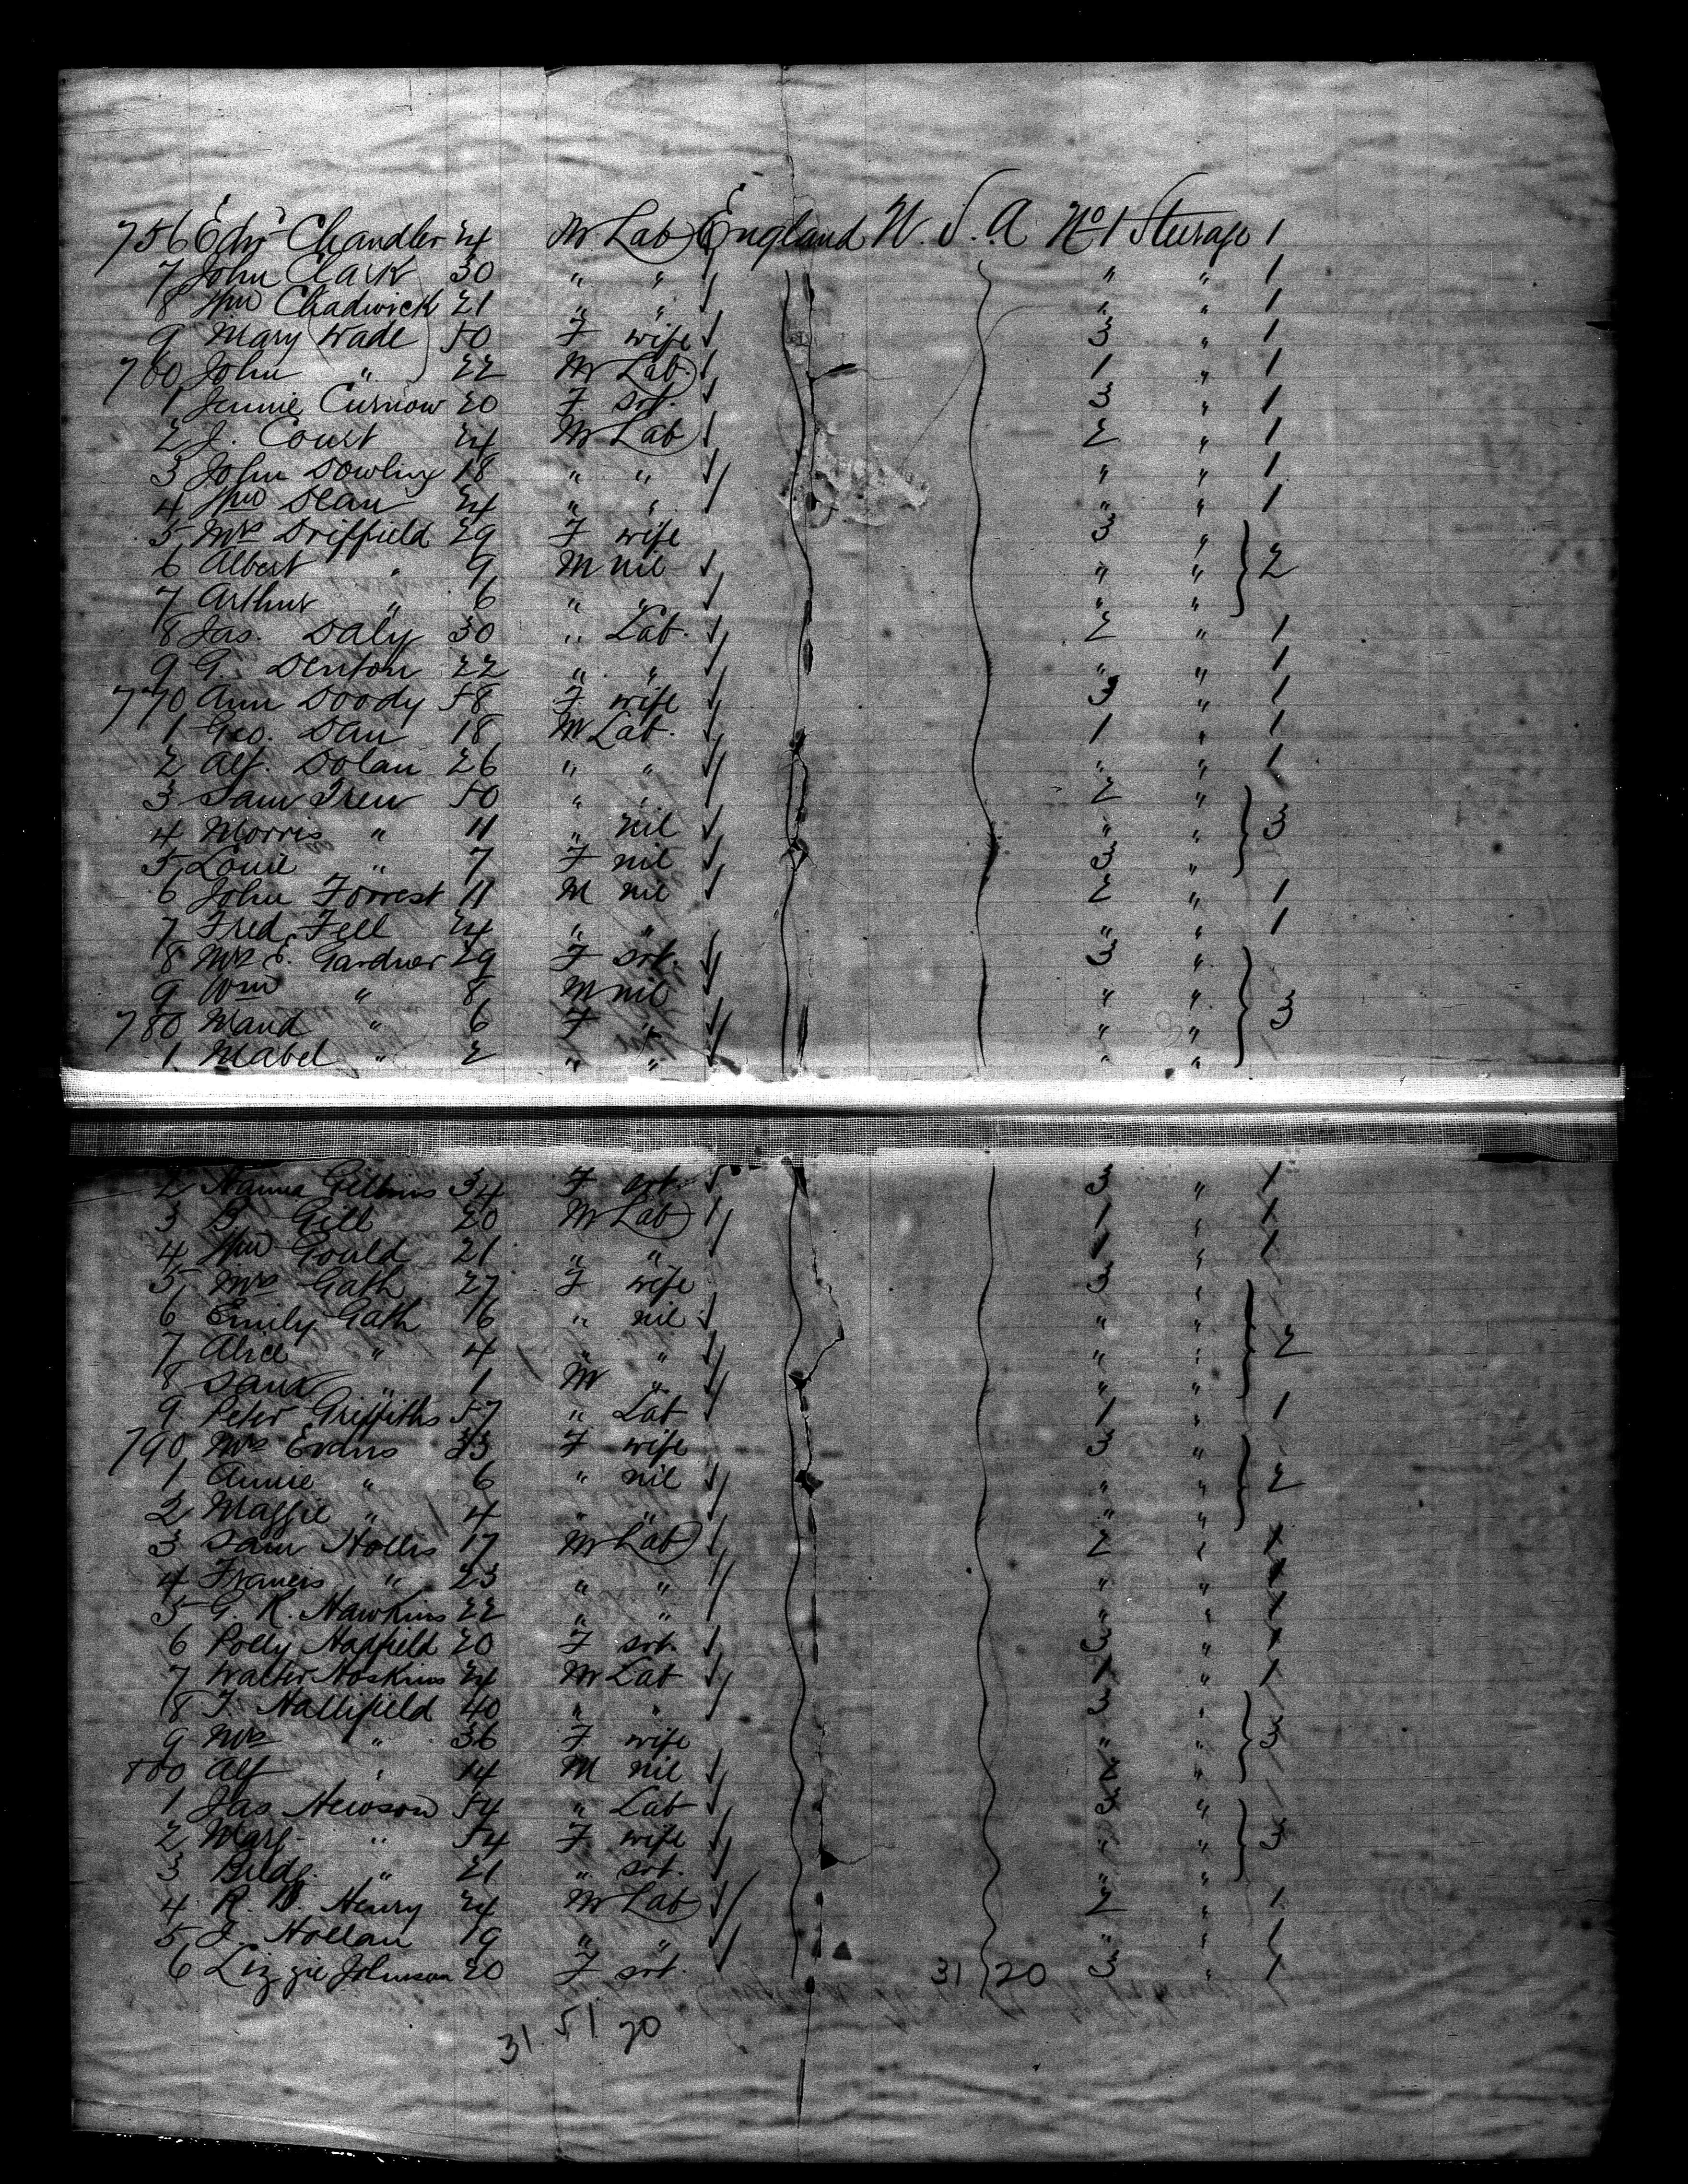 756 Edw Chandler 24 M Lab England U. S. A No 1 Steerage 1
7 John Clark 30 " " " " 1
8 Wm Chadwick 21 " " " " 1
9 Mary Wade 50 F wife 3 " 1
760 John " 22 M Lab. 1 " 1
1 Jennie Curnow 20 F srt. 3 " 1
2 J. Court 24 M Lab 2 " 1
3 John Dowling 18 " " " " 1
4 Wm Dean 24 " " " " 1
5 Mrs Driffield 29 F wife 3 "
6 Albert " 9 M nil " " 2
7 Arthur " 6 " " " "
8 Jas. Daly 30 " Lab. 2 " 1
9 G. Denton 22 " " " " 1
770 Ann Doody 58 F wife 3 " 1
1 Geo. Dan 18 M Lab. 1 " 1
2 Alf. Dolan 26 " " " " 1
3 Sam Trew 50 " " 2 "
4 Morris " 11 " nil " " 3
5 Louie " 7 F nil 3 "
6 John Forrest 11 M nil 2 " 1
7 Fred Fell 24 " " " " 1
8 Mrs E. Gardner 29 F srt. 3 "
9 Wm " 8 M nil " "
780 Maud " 6 F " " " 3
1 Mabel " 2 " " " "
2 Hanna 34 F srt. 3 " 1
3 B. Gill 20 M Lab 1 " 1
4 Wm Gould 21 " " 1 " 1
5 Mrs Gath 27 F wife 3 "
6 Emily Gath 16 " nil " "
7 Alice " 4 " " " " 2
8 Sam " 1 M " " "
9 Peter Griffiths 57 " Lab 1 " 1
790 Mrs Evans 33 F wife 3 "
1 Annie " 6 " nil " " 2
2 Maggie " 4 " " " "
3 Sam Hollis 17 M Lab 2 " 1
4 Francis " 23 " " " " 1
5 G. R. Hawkins 22 " " " " 1
6 Polly Hadfield 20 F srt. 3 " 1
7 Walter Hoskins 24 M Lab 1 " 1
8 T. Hallifield 40 " " 3 "
9 Mrs " 36 F wife " " 3
800 Alf " 14 M nil "
1 Jas Hewson 54 " Lab 3 "
2 Marg " 54 F wife " " 3
3 Bridg. " 21 " srt. " "
4 R. B. Henry 24 M Lab 2 " 1
5 J. Hollan 19 " " " " 1
6 Lizzie Johnson 20 F srt. 31 20 3 " 1
31. 51. 70